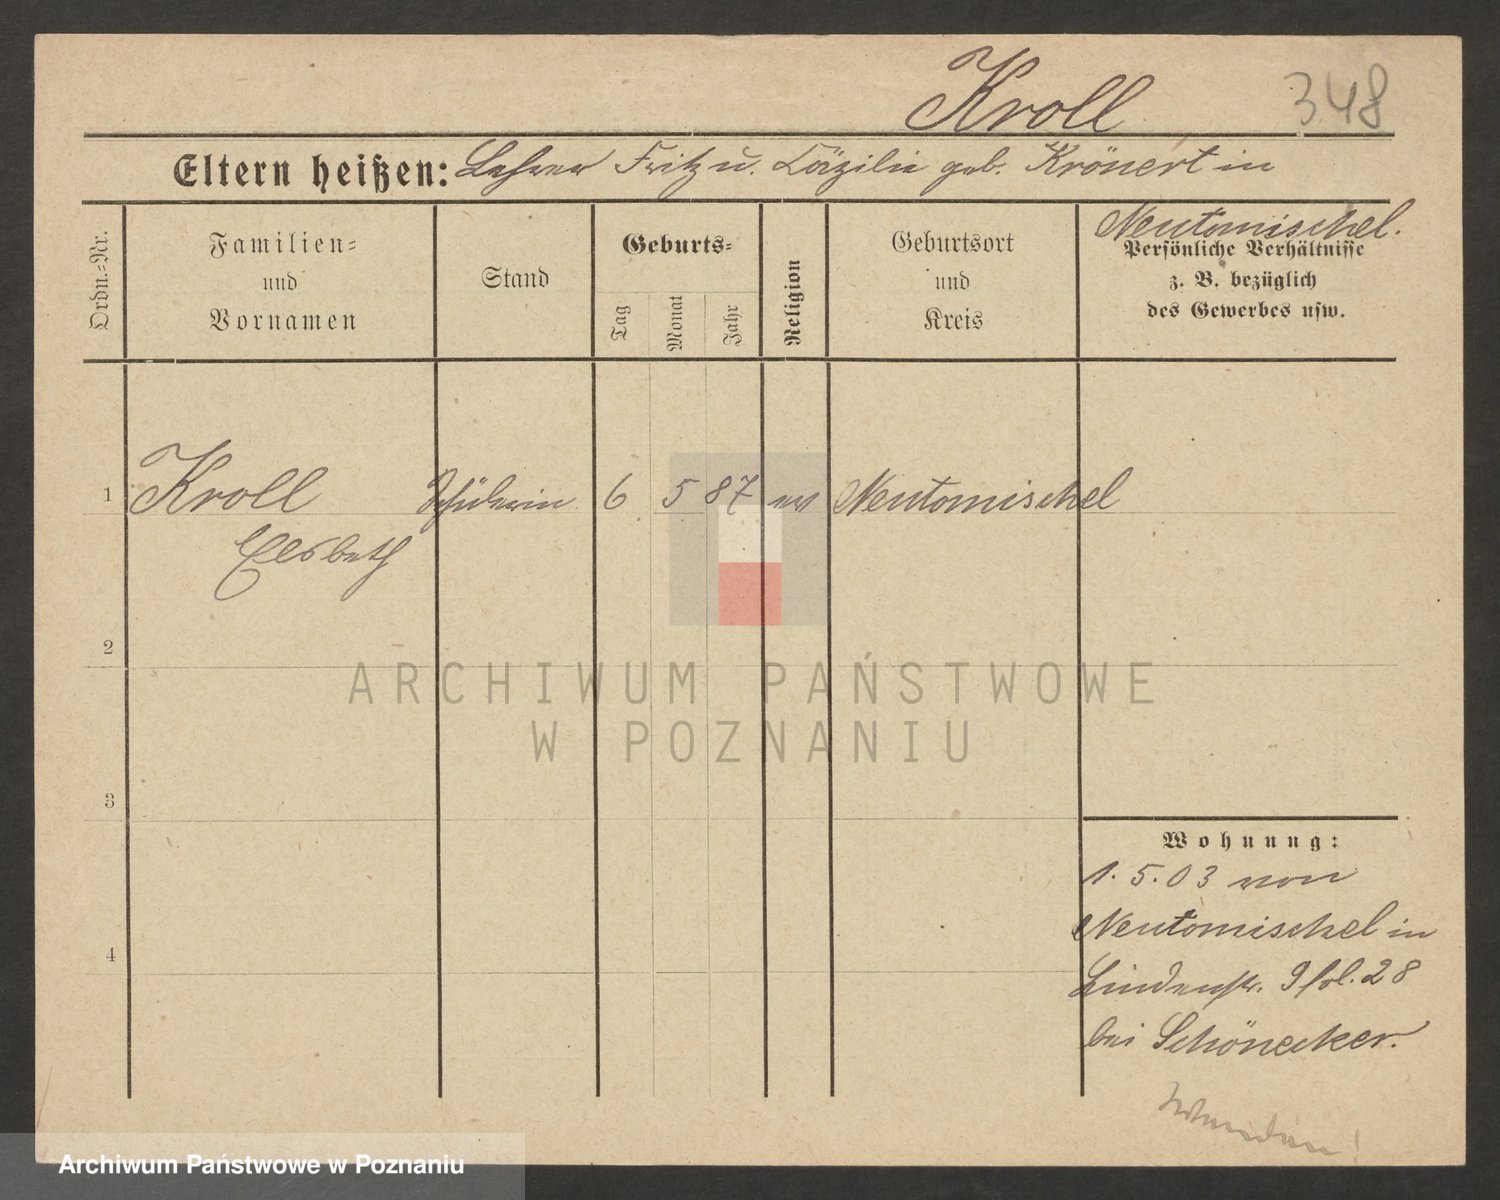 Kroll 348
Eltern heißen: Lehrer Fritz u. Cäzilie geb. Krönert in
Neutomischel.
Ordn.=Nr.
Familien=
und
Vornamen
Stand
Geburts=
Tag
Monat
Jahr
Religion
Geburtsort
und
Kreis
Persönliche Verhältnisse
z. B. bezüglich
des Gewerbes usw.
1 Kroll Schülerin 6 5 87 ev Neutomischel
Elsbeth
2
3
4
Wohnung:
1. 5. 03 von
Neutomischel in
Lindenstr. 9 fol. 28
bei Schönecker.
ARCHIWUM PAŃSTWOWE
W POZNANIU
Archiwum Państwowe w Poznaniu